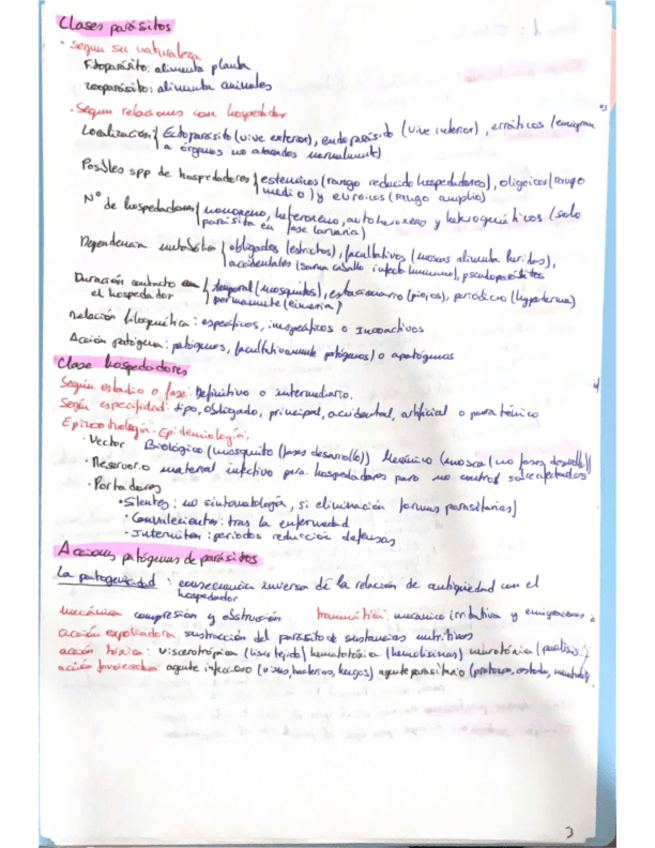 Clases parásitos
· Según su naturaleza
Fitoparásito: alimenta planta
zooparásito: alimenta animales
· Según relaciones con hospedador
Localización { Ectoparásito (vive exterior), endoparásito (vive interior), erráticos (emigran
a órganos no atacados normalmente)
Posibles spp de hospedadores { estenoicos (rango reducido hospedadores), oligoicos (rango
medio) y euroicos (rango amplio)
Nº de hospedadores { monoxeno, heteroxeno, autoheteroxeno y (solo
parásita en fase larvaria)
Dependencia { obligados (estrictos), facultativos (moscas alimenta heridas),
accidentales (sarna caballo infecta humano), pseudoparásitos
Duración contacto con
el hospedador { temporal (mosquitos), estacionario (piojos), periódicos (hypoderma)
permanente (eimeria)
Relación filogenética: específicos, inespecíficos o
Acción patógena: patógenos, facultativamente patógenos) o apatógenos
Clase hospedadores
Según estadio o fase: Definitivo o intermediario.
Según especificidad: tipo, obligado, principal, accidental, artificial o paraténico
Epizootiología - Epidemiología.
· Vector Biológico (mosquito (fases desarrollo)) Mecánico (mosca (no fases desarrollo))
· Reservorio material infectivo para hospedadores pero no control
· Portadores
· Silentes: no sintomatología, si eliminación formas parasitarias)
· Convalecientes: tras la enfermedad
· : periodos reducción defensas
Acciones patógenas de parásitos
La patogenicidad : consecuencia inversa de la relación de antigüedad con el
hospedador
mecánica compresión y obstrucción traumática: mecánico irritativa y emigraciones
acción expoliadora sustracción del parásito de sustancias nutritivas
acción tóxica: viscerotrópica (lisis tejido) hematotóxica (hemolisinas) neurotóxica (parálisis)
acción agente infeccioso (virus, bacterias, hongos) agente parasitario (protozoos,
3